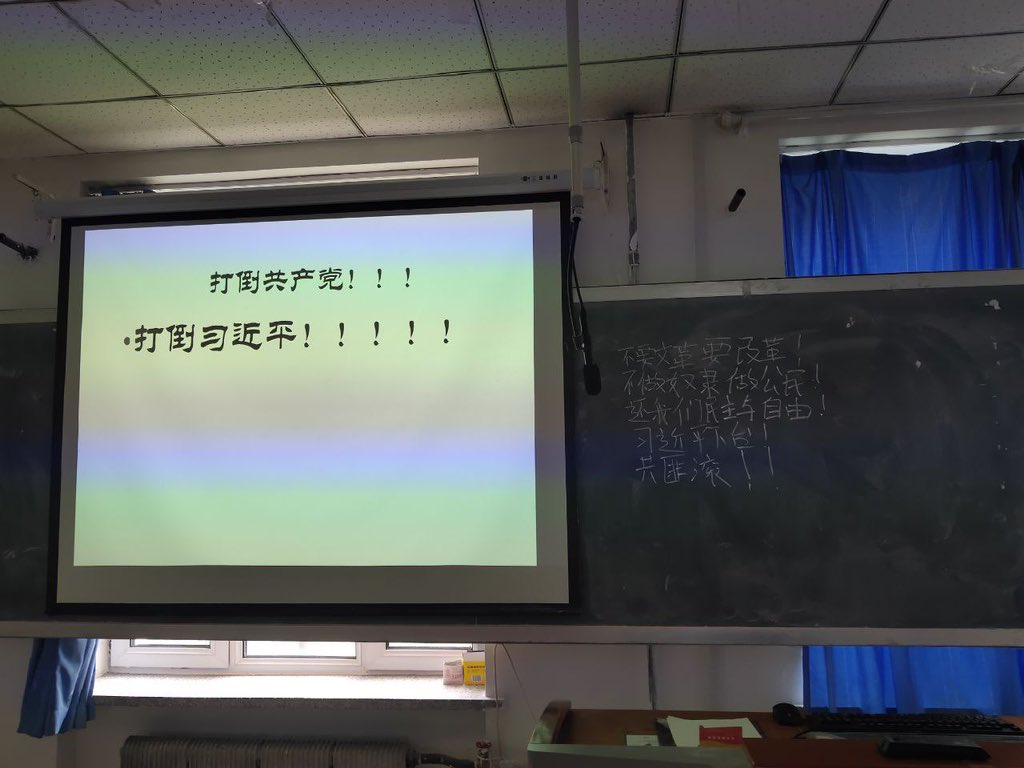 打倒共产党！！！
•打倒习近平！！！！！
不要文革要改革！
不做奴隶做公民！
还我们民主与自由！
习近平下台！
共匪滚！！